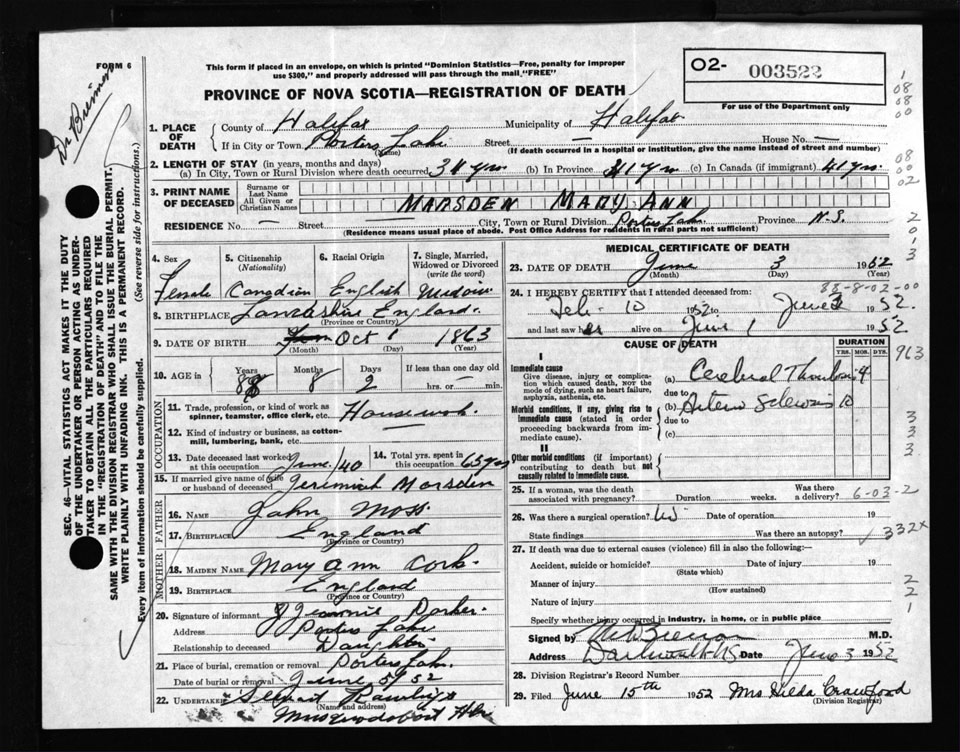 FORM 6
This form if placed in an envelope, on which is printed "Dominion Statistics—Free, penalty for improper
use $300," and properly addressed will pass through the mail "FREE"
O2- 003522
For use of the Department only
PROVINCE OF NOVA SCOTIA—REGISTRATION OF DEATH
1. PLACE OF DEATH
County of Halifax Municipality of Halifax
If in City or Town Porters Lake Street — House No. —
(Name) (If death occurred in a hospital or institution, give the name instead of street and number)
2. LENGTH OF STAY (in years, months and days)
(a) In City, Town or Rural Division where death occurred yrs (b) In Province 41 yrs (c) In Canada (if immigrant) 41 yrs
3. PRINT NAME OF DECEASED
Surname or Last Name
All Given or Christian Names
MARSDEN MARY ANN
RESIDENCE No. — Street — City, Town or Rural Division Porters Lake Province N.S.
(Residence means usual place of abode. Post Office Address for residents in rural parts not sufficient)
SEC. 46—VITAL STATISTICS ACT MAKES IT THE DUTY
OF THE UNDERTAKER OR PERSON ACTING AS UNDER-
TAKER TO OBTAIN ALL THE PARTICULARS REQUIRED
IN THE "REGISTRATION OF DEATH" AND TO FILE THE
SAME WITH THE DIVISION REGISTRAR WHO SHALL ISSUE THE BURIAL PERMIT.
WRITE PLAINLY WITH UNFADING INK. THIS IS A PERMANENT RECORD.
Every item of information should be carefully supplied. (See reverse side for instructions.)
4. Sex
Female
5. Citizenship
(Nationality)
Canadian
6. Racial Origin
English
7. Single, Married, Widowed or Divorced
(write the word)
Widow
8. BIRTHPLACE Lancashire England
(Province or Country)
9. DATE OF BIRTH Oct 1 1863
(Month) (Day) (Year)
10. AGE in Years Months 8 Days 2 If less than one day old
hrs. or — min.
OCCUPATION
11. Trade, profession, or kind of work as
spinner, teamster, office clerk, etc. Housework
12. Kind of industry or business, as cotton-
mill, lumbering, bank, etc.
13. Date deceased last worked at this occupation June/40
14. Total yrs. spent in this occupation 65 yrs
15. If married give name of wife or husband of deceased Jeremiah Marsden
FATHER
16. NAME John Moss
17. BIRTHPLACE England
(Province or Country)
MOTHER
18. MAIDEN NAME Mary Ann Cork
19. BIRTHPLACE England
(Province or Country)
20. Signature of informant
Address Porters Lake
Relationship to deceased Daughter
21. Place of burial, cremation or removal Porters Lake
Date of burial or removal June 5 1952
22. UNDERTAKER
(Name and address)
Musquodoboit Hbr
MEDICAL CERTIFICATE OF DEATH
23. DATE OF DEATH June 3 1952
(Month) (Day) (Year)
88-8-02-00
24. I HEREBY CERTIFY that I attended deceased from:
Feb 10 1952 to June 3 1952
and last saw her alive on June 1 1952
CAUSE OF DEATH
DURATION
YRS. MOS. DYS.
963
I
Immediate cause
Give disease, injury or complication which caused death, NOT the mode of dying, such as heart failure, asphyxia, asthenia, etc.
(a) Cerebral Thrombosis 4
due to
Morbid conditions, if any, giving rise to immediate cause (stated in order proceeding backwards from immediate cause).
(b) Arterio Sclerosis 10
due to
(c)
II
Other morbid conditions (if important) contributing to death but not causally related to immediate cause.
25. If a woman, was the death associated with pregnancy? Duration weeks. Was there a delivery? 6-03-2
26. Was there a surgical operation? Date of operation 19
State findings Was there an autopsy? 332X
27. If death was due to external causes (violence) fill in also the following:—
Accident, suicide or homicide? Date of injury 19
(State which)
Manner of injury
(How sustained)
Nature of injury
Specify whether injury occurred in industry, in home, or in public place
Signed by M.D.
Address Dartmouth NS Date June 3 1952
28. Division Registrar's Record Number
29. Filed June 15th 1952 Mrs Hilda Crawford
(Division Registrar)